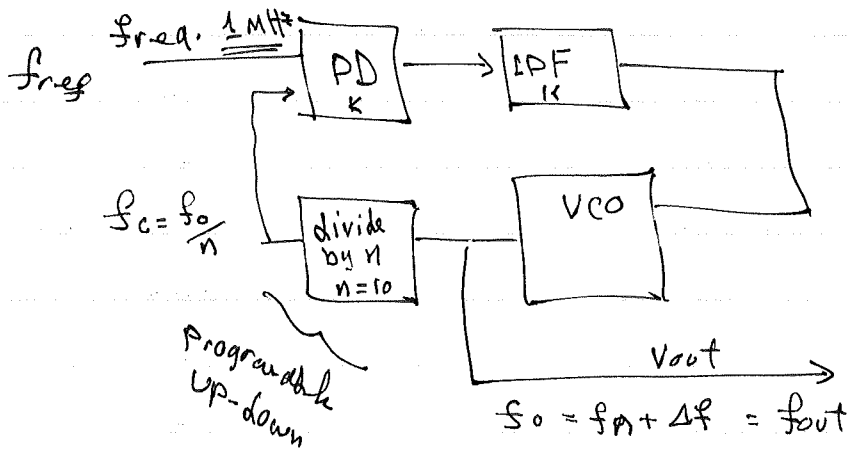 freq. 1 MHz
fref
PD
K
LPF
K
VCO
fc = fo/n
divide
by n
n=10
Programmable
up-down
Vout
fo = fA + Δf = fout